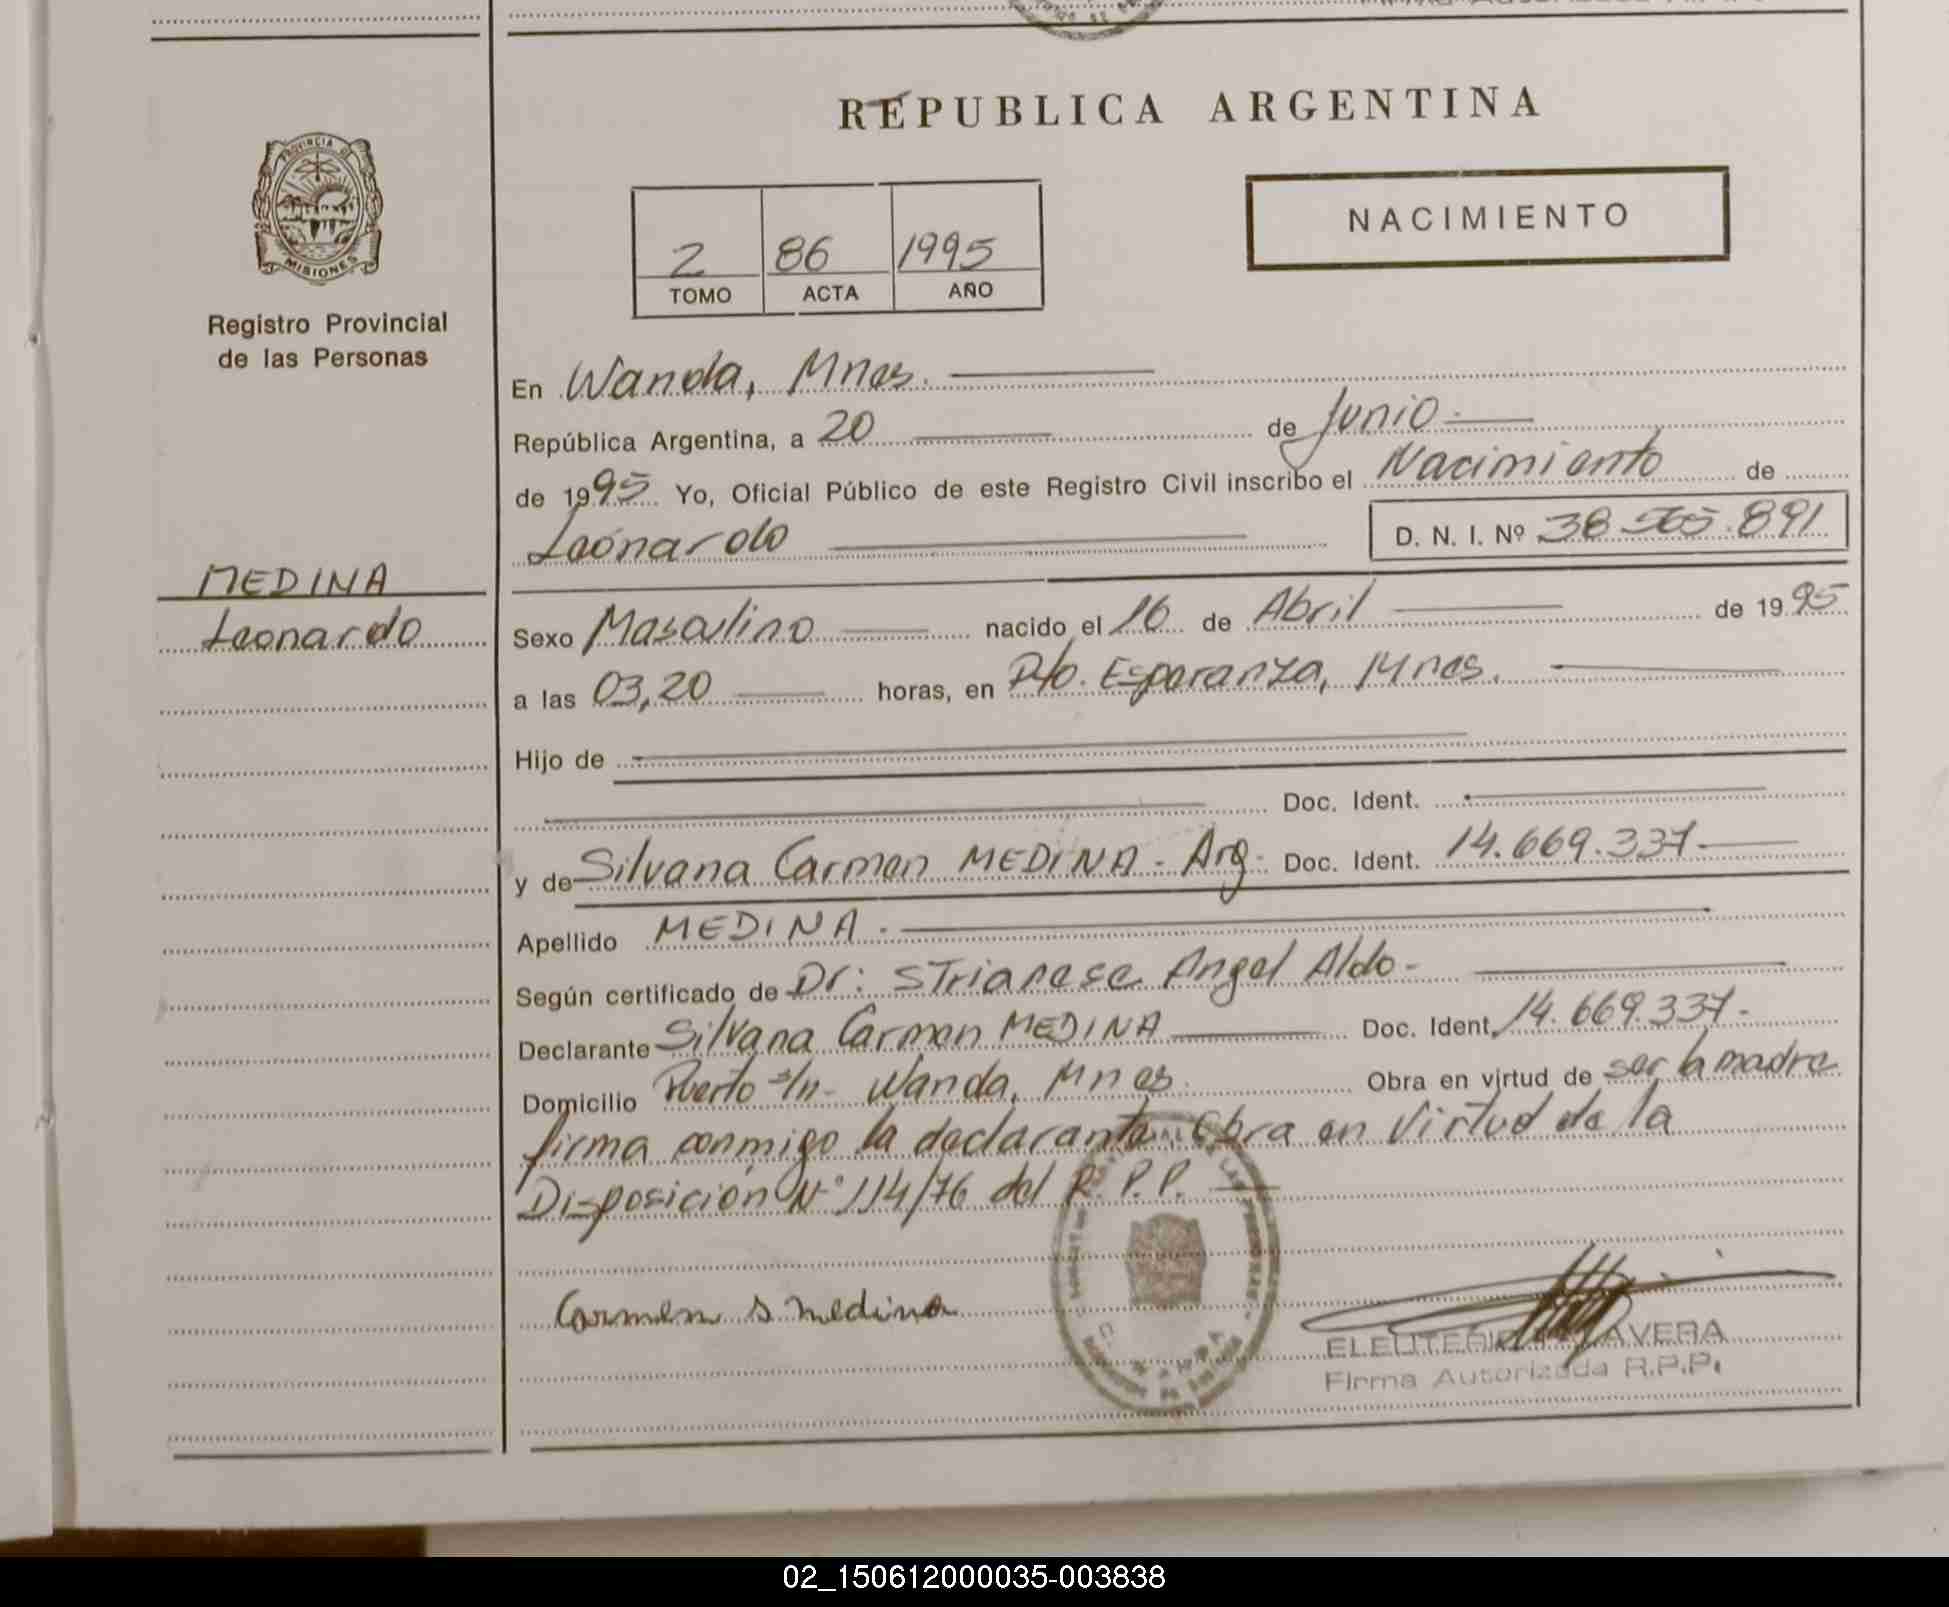 REPUBLICA ARGENTINA
PROVINCIA DE
MISIONES
Registro Provincial
de las Personas
NACIMIENTO
2 86 1995
TOMO ACTA AÑO
En Wanda, Mnes.
República Argentina, a 20 de Junio
de 1995 Yo, Oficial Público de este Registro Civil inscribo el Nacimiento de
Leonardo D. N. I. Nº 38.565.891
MEDINA
Leonardo
Sexo Masculino nacido el 16 de Abril de 1995
a las 03,20 horas, en Pto. Esperanza, Mnes.
Hijo de
Doc. Ident.
y de Silvana Carmen MEDINA - Arg. Doc. Ident. 14.669.337-
Apellido MEDINA.
Según certificado de Dr: STrianese Angel Aldo-
Declarante Silvana Carmen MEDINA Doc. Ident. 14.669.337-
Domicilio Puerto s/n- Wanda, Mnes. Obra en virtud de ser la madre
firma conmigo la declarante. Obra en Virtud de la
Disposición Nº 114/76 del R.P.P.
Carmen S Medina
AVERA
Firma Autorizada R.P.P.
02_150612000035-003838